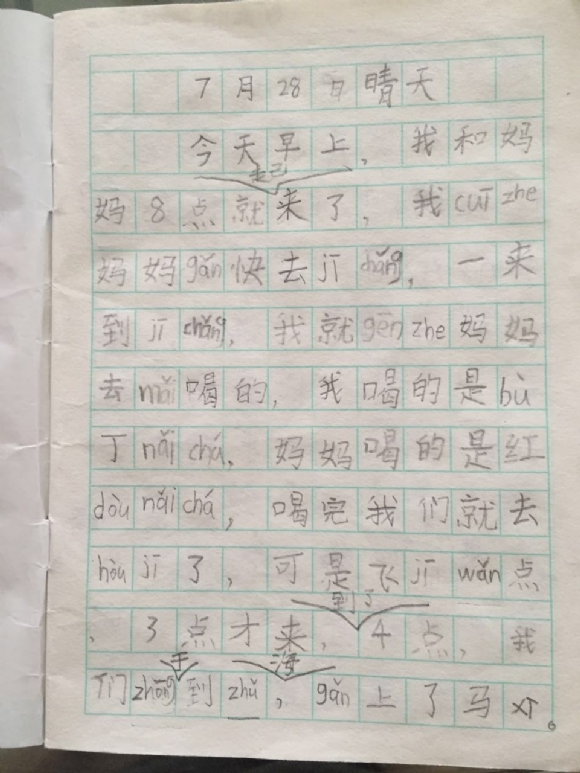 7月28日晴天
今天早上，我和妈
起
妈8点就来了，我cuī zhe
妈妈gǎn快去jī chǎng，一来
到jī chǎng，我就gēn zhe妈妈
去mǎi喝的，我喝的是bù
丁nǎi chá，妈妈喝的是红
dòu nǎi chá，喝完我们就去
hòu jī了，可是飞jī wǎn点
到了
、3点才来，4点，我
于 海
们zhōng到zhū，gǎn上了马
6